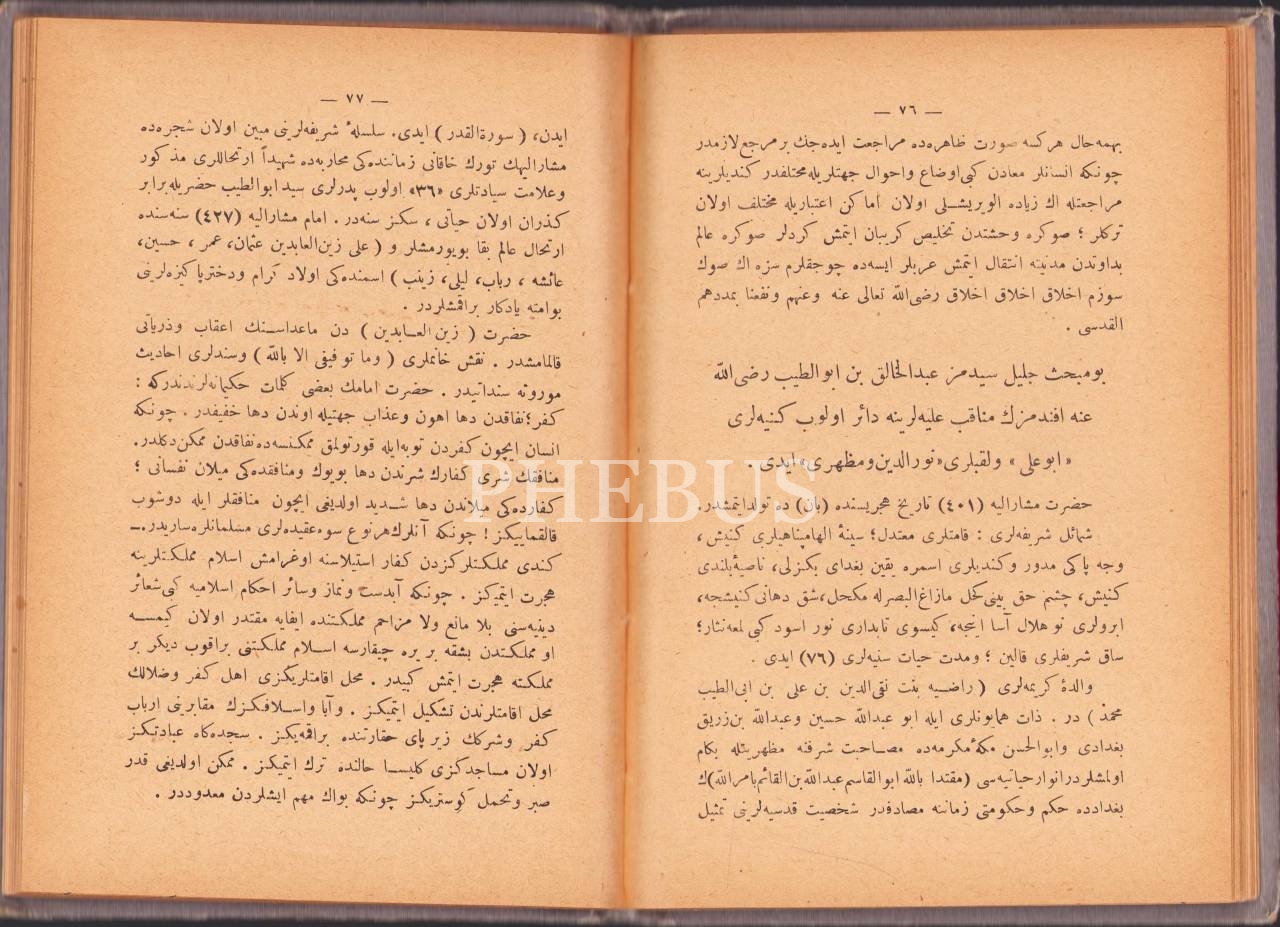 — ٧٦ —
بهمه‌حال هركسه صورت ظاهره‌ده مراجعت ايده‌جك بر مرجع لازمدر
چونكه انسانلر معادن كبى اوضاع واحوال جهتلريله مختلفدر كنديلرينه
مراجعتله اك زياده الويريشلى اولان أماكن اعتباريله مختلف اولان
تركلر ؛ صوكره وحشتدن تخليص كريبان ايتمش كردلر صوكره عالم
بداوتدن مدنيته انتقال ايتمش عربلر ايسه‌ده چوجقلرم سزه اك صوك
سوزم اخلاق اخلاق اخلاق رضى‌الله تعالى عنه وعنهم ونفعنا بمددهم
القدسى .
بومبحث جليل سيدمز عبدالخالق بن ابوالطيب رضى‌الله
عنه افندمزك مناقب عليه‌لرينه دائر اولوب كنيه‌لرى
«ابوعلى» ولقبلرى «نورالدين ومظهرى» ايدى .
حضرت مشاراليه (٤٠١) تاريخ هجريسنده (بان) ده تولدايتمشدر.
شمائل شريفه‌لرى : قامتلرى معتدل؛ سينهٔ الهامپناهيلرى كنيش ،
وجه پاكى مدور وكنديلرى اسمره يقين بغداى بكزلى، ناصيهٔ بلندى
كنيش، چشم حق بينى كحل مازاغ‌البصرله مكحل، شق دهانى كنيشجه،
ابرولرى نو هلال آسا اينجه، كيسوى تابدارى نور اسود كبى لمعه‌نثار؛
ساق شريفلرى قالين ؛ ومدت حيات سنيه‌لرى (٧٦) ايدى .
والدهٔ كريمه‌لرى (راضيه بنت تقى‌الدين بن على بن ابى‌الطيب
محمد) در . ذات همايونلرى ايله ابو عبدالله حسين وعبدالله بن‌زريق
بغدادى وابوالحسن مكهٔ مكرمه‌ده مصاحبت شرفنه مظهريتله بكام
اولمشلردر انوار حياتيه‌سى (مقتدا بالله ابوالقاسم عبدالله بن‌القائم بامرالله)ك
بغدادده حكم وحكومتى زماننه مصادفدر شخصيت قدسيه‌لرينى تمثيل
— ٧٧ —
ايدن، (سورةالقدر) ايدى. سلسلهٔ شريفه‌لرينى مبين اولان شجره‌ده
مشاراليهك تورك خاقانى زماننده‌كى محاربه‌ده شهيداً ارتحاللرى مذكور
وعلامت سيادتلرى «٣٦» اولوب پدرلرى سيد ابوالطيب حضرتيله برابر
كذران اولان حياتى ، سكز سنه‌در. امام مشاراليه (٤٢٧) سنه‌سنده
ارتحال عالم بقا بويورمشلر و (على زين‌العابدين عثمان، عمر ، حسين،
عائشه ، رباب، ليلى، زينب) اسمنده‌كى اولاد كرام ودختر پاكيزه‌لرينى
بوامته يادكار براقمشلردر.
حضرت (زين‌العابدين) دن ماعداسنك اعقاب وذرياتى
قالمامشدر. نقش خاتملرى (وما توفيقى الا بالله) وسندلرى احاديث
موروثه سنداتيدر. حضرت امامك بعضى كلمات حكيمانه‌لرندندركه :
كفر؛ نفاقدن دها اهون وعذاب جهتيله اوندن دها خفيفدر. چونكه
انسان ايچون كفردن توبه‌ايله قورتولمق ممكنسه‌ده نفاقدن ممكن دكلدر.
منافقك شرى كفارك شرندن دها بويوك ومنافقده‌كى ميلان نفسانى ؛
كفارده‌كى ميلاندن دها شديد اولديغى ايچون منافقلر ايله دوشوب
قالقماييكز! چونكه آنلرك هر نوع سوء عقيده‌لرى مسلمانلره ساريدر.ـ
كندى مملكتلركزدن كفار استيلاسنه اوغرامش اسلام مملكتلرينه
هجرت ايتميكز. چونكه آبدست ونماز وسائر احكام اسلاميه كبى شعائر
دينيه‌سنى بلا مانع ولا مزاحم مملكتنده ايفايه مقتدر اولان كيمسه
او مملكتدن بشقه بر يره چيقارسه اسلام مملكتنى براقوب ديكر بر
مملكته هجرت ايتمش كبيدر. محل اقامتلريكزى اهل كفر وضلالك
محل اقامتلرندن تشكيل ايتميكز. وآبا واسلافكزك مقابرينى ارباب
كفر وشركك زير پاى حقارتنده براقميكز. سجده‌كاه عبادتكز
اولان مساجدكزى كليسا حالنده ترك ايتميكز. ممكن اولديغى قدر
صبر وتحمل كوستريكز چونكه بواك مهم ايشلردن معدوددر.
PHEBUS